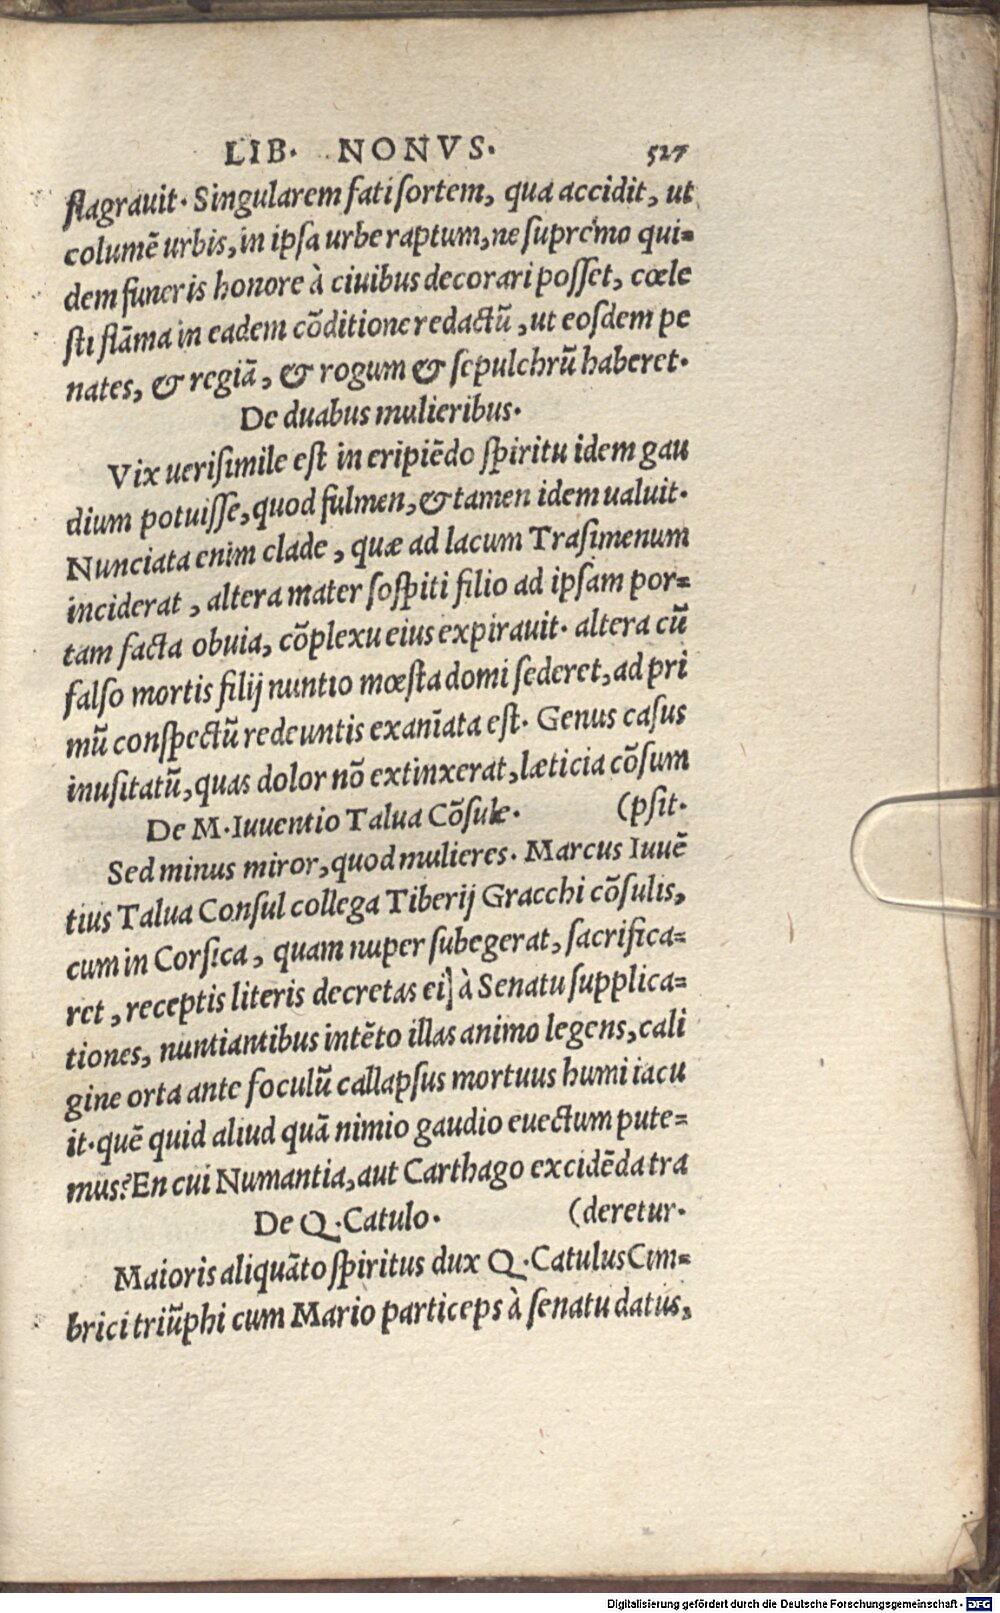 LIB. NONVS. 527
flagrauit. Singularem fati sortem, qua accidit, ut
columē urbis, in ipsa urbe raptum, ne supremo qui=
dem funeris honore à ciuibus decorari posset, cœle
sti flāma in eadem cōditione redactū, ut eosdem pe
nates, & regiā, & rogum & sepulchrū haberet.
De duabus mulieribus.
Vix uerisimile est in eripiēdo spiritu idem gau
dium potuisse, quod fulmen, & tamen idem ualuit.
Nunciata enim clade, quæ ad lacum Trasimenum
inciderat, altera mater sospiti filio ad ipsam por=
tam facta obuia, cōplexu eius expirauit. altera cū
falso mortis filij nuntio mœsta domi sederet, ad pri
mū conspectū redeuntis exanīata est. Genus casus
inusitatū, quas dolor nō extinxerat, læticia cōsum
De M. Iuuentio Talua Cōsule. (psit.
Sed minus miror, quod mulieres. Marcus Iuuē
tius Talua Consul collega Tiberij Gracchi cōsulis,
cum in Corsica, quam nuper subegerat, sacrifica=
ret, receptis literis decretas ei] à Senatu supplica=
tiones, nuntiantibus intēto illas animo legens, cali
gine orta ante foculū callapsus mortuus humi iacu
it. quē quid aliud quā nimio gaudio euectum pute=
mus? En cui Numantia, aut Carthago excidēda tra
De Q. Catulo. (deretur.
Maioris aliquāto spiritus dux Q. Catulus Cim=
brici triūphi cum Mario particeps à senatu datus,
Digitalisierung gefördert durch die Deutsche Forschungsgemeinschaft - DFG